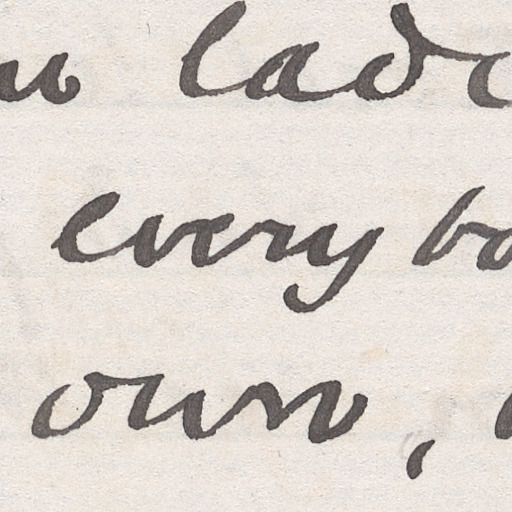 lad
every bo
own,